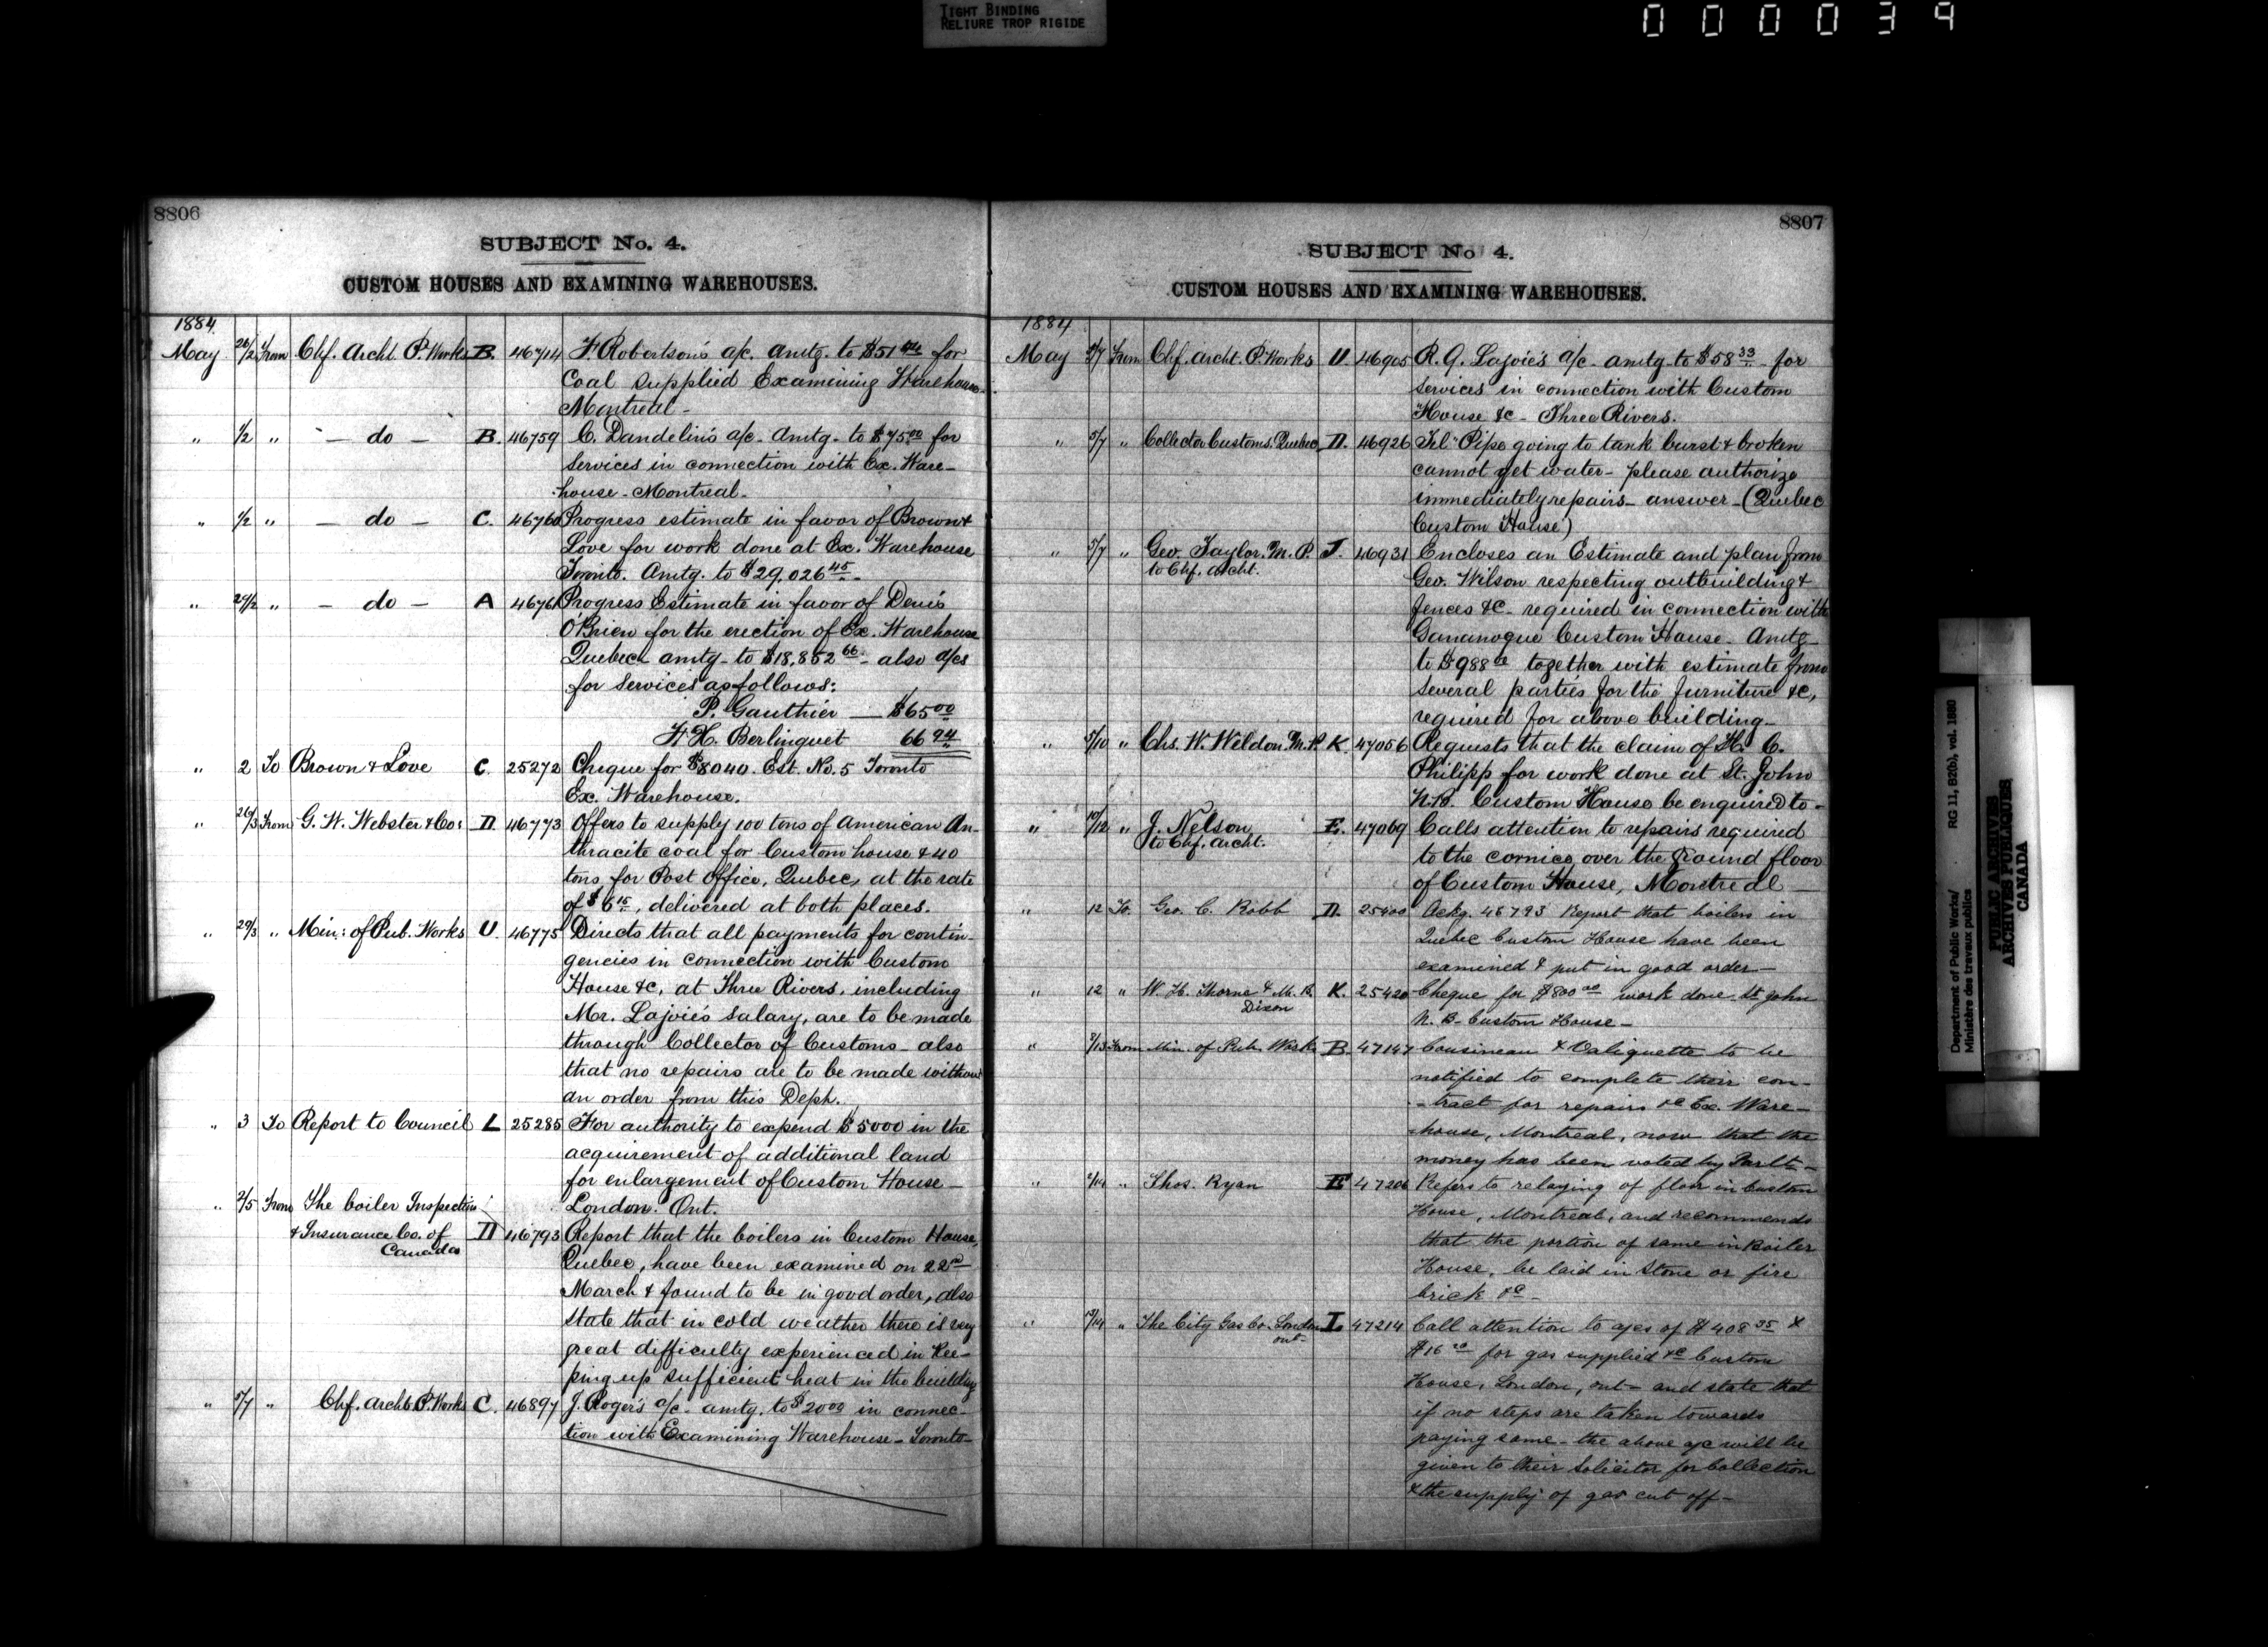 TIGHT BINDING
RELIURE TROP RIGIDE
000039
8806
SUBJECT No. 4.
CUSTOM HOUSES AND EXAMINING WAREHOUSES.
1884
May 26/2 From Chf. Archt. P. Works B. 46714 F. Robertson's a/c. amtg. to $51 for
Coal supplied Examining Warehouse
Montreal -
" 1/2 " - do - B. 46759 C. Dandelin's a/c - Amtg - to $75.00 for
services in connection with Ex. Ware-
house - Montreal -
" 1/2 " - do - C. 46760 Progress estimate in favor of Brown &
Love for work done at Ex. Warehouse
Toronto. Amtg. to $29,026 45 -
" 29/2 " - do - A 46761 Progress Estimate in favor of Denis
O'Brien for the erection of Ex. Warehouse
Quebec amtg - to $18,852 66 - also a/cs
for services as follows:
P. Gauthier — $65 00
F. X. Berlinguet 66 94
" 2 To Brown & Love C. 25272 Cheque for $8040. Est. No. 5 Toronto
Ex. Warehouse.
" 26/3 From G. W. Webster & Co: D. 46773 Offers to supply 100 tons of American An-
thracite coal for Custom house & 40
tons for Post Office, Quebec, at the rate
of $6 15, delivered at both places.
" 29/3 " Min: of Pub. Works U. 46775 Directs that all payments for contin-
gencies in connection with Custom
House &c, at Three Rivers, including
Mr. Lajoie's salary, are to be made
through Collector of Customs - also
that no repairs are to be made without
an order from this Dept.
" 3 To Report to Council L 25285 For authority to expend $5000 in the
acquirement of additional land
for enlargement of Custom House -
" 2/5 From The boiler Inspection London. Ont.
& Insurance Co. of Canada D 46793 Report that the boilers in Custom House,
Quebec, have been examined on 22nd
March & found to be in good order, also
state that in cold weather there is very
great difficulty experienced in Kee-
ping up sufficient heat in the building
" 5/7 " Chf. Archt. P. Works C. 46897 J. Roger's a/c - amtg. to $20 00 in connec-
tion with Examining Warehouse - Toronto -
8807
SUBJECT No 4.
CUSTOM HOUSES AND EXAMINING WAREHOUSES.
1884
May 5/7 From Chf. archt. P. Works U. 46905 R. G. Lajoie's a/c - amtg - to $58 33 - for
services in connection with Custom
House &c - Three Rivers.
" 5/7 " Collector Customs, Quebec D. 46926 Tel "Pipe going to tank burst & broken
cannot get water - please authorize
immediately repairs - answer - (Quebec
Custom House)
" 5/7 " Geo. Taylor. M. P. J. 46931 Encloses an Estimate and plan from
to Chf. Archt.
Geo. Wilson respecting outbuilding &
fences &c - required in connection with
Gananoque Custom House - Amtg -
to $988 00 together with estimate from
several parties for the furniture &c,
required for above building -
" 5/10 " Chs. W. Weldon. M. P. K. 47056 Requests that the claim of H. C.
Philipp for work done at St. John
N.B. Custom House be enquired to -
" 10/12 " J. Nelson E. 47069 Calls attention to repairs required
to Chf. archt.
to the cornice over the ground floor
of Custom House, Montreal —
" 12 To Geo. C. Robb D. 25400 Ackg. 46793 Report that boilers in
Quebec Custom House have been
examined & put in good order —
" 12 " W. H. Thorne & M. R. K. 25420 Cheque for $800 00 work done - St John
Dixon
N. B - Custom House -
" 8/13 From Min. of Pub. Works B. 47147 Cousineau & Valiquette to be
notified to complete their con-
tract for repairs &c Ex. Ware-
house, Montreal, now that the
money has been voted by Parlt -
" 2/14 " Thos. Ryan E 47206 Refers to relaying of floor in Custom
House, Montreal, and recommends
that the portion of same in Boiler
House, be laid in stone or fire
brick &c -
" 13/14 " The City Gas Co. London L. 47214 Call attention to a/cs of $408 35 &
ont -
$16 20 for gas supplied &c Custom
House, London, ont - and state that
if no steps are taken towards
paying same - the above a/c will be
given to their Solicitor for Collection
& the supply of gas cut off -
Department of Public Works/ RG 11, B2(b), vol. 1880
Ministère des travaux publics
PUBLIC ARCHIVES
ARCHIVES PUBLIQUES
CANADA